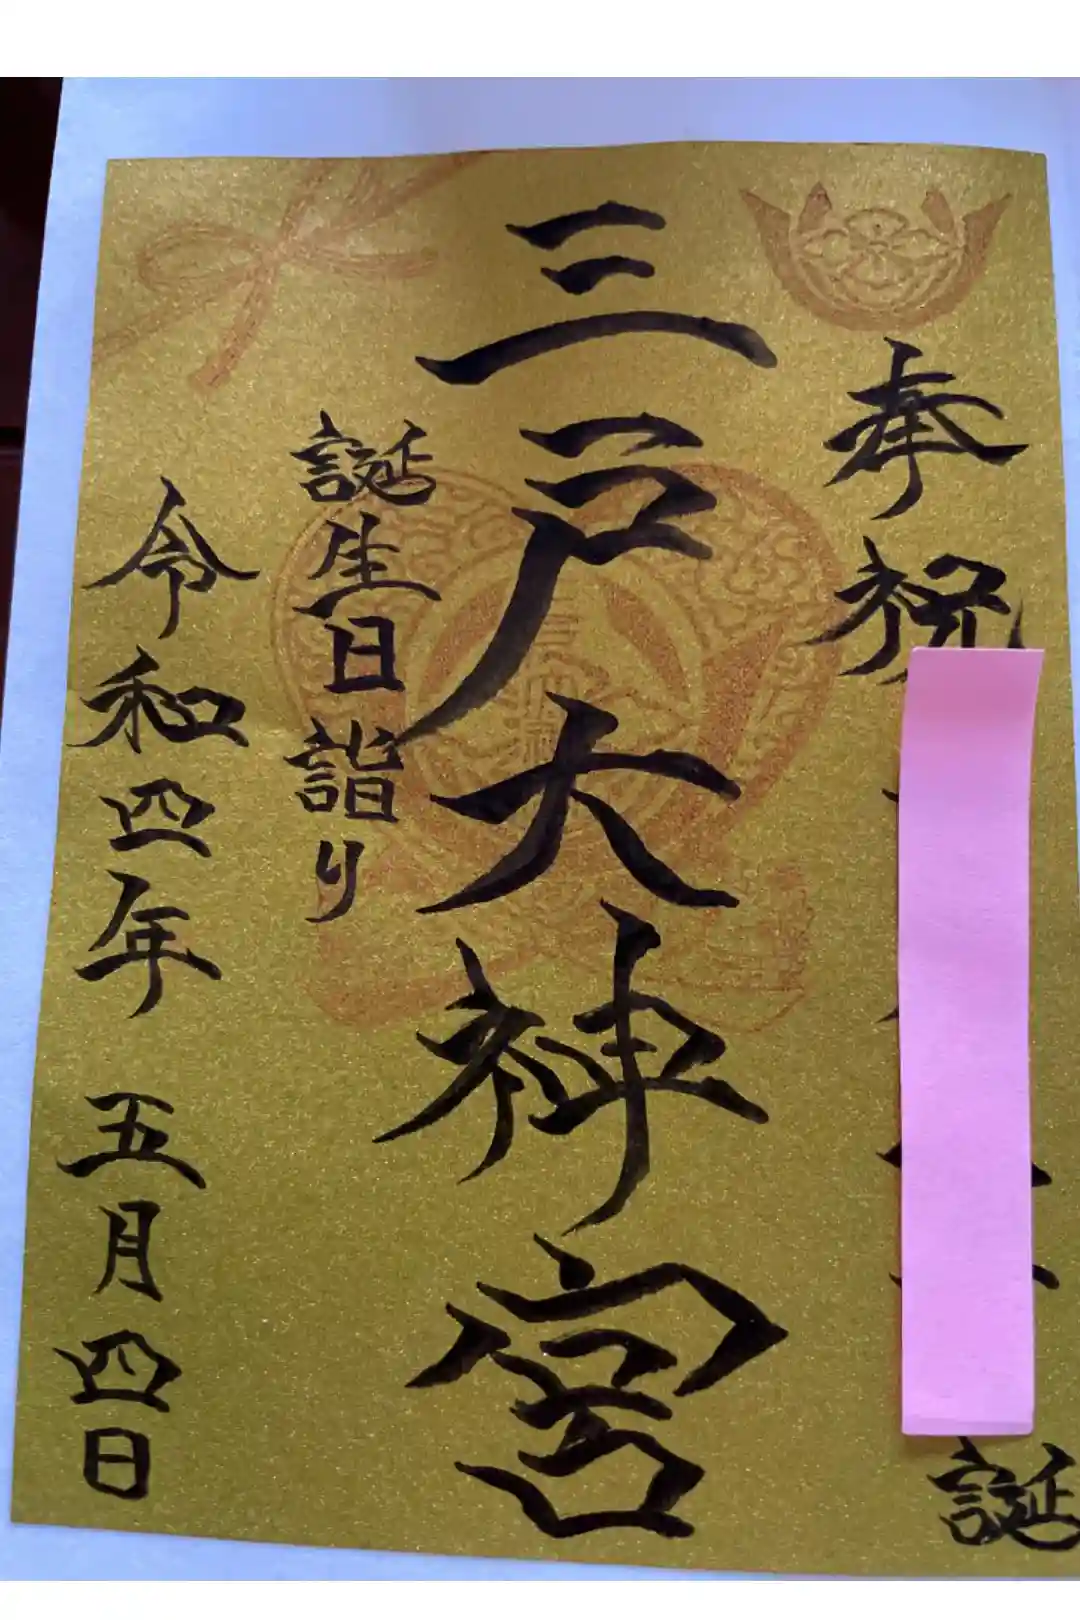 奉祝
誕
三戸大神宮
誕生日詣り
令和四年 五月四日